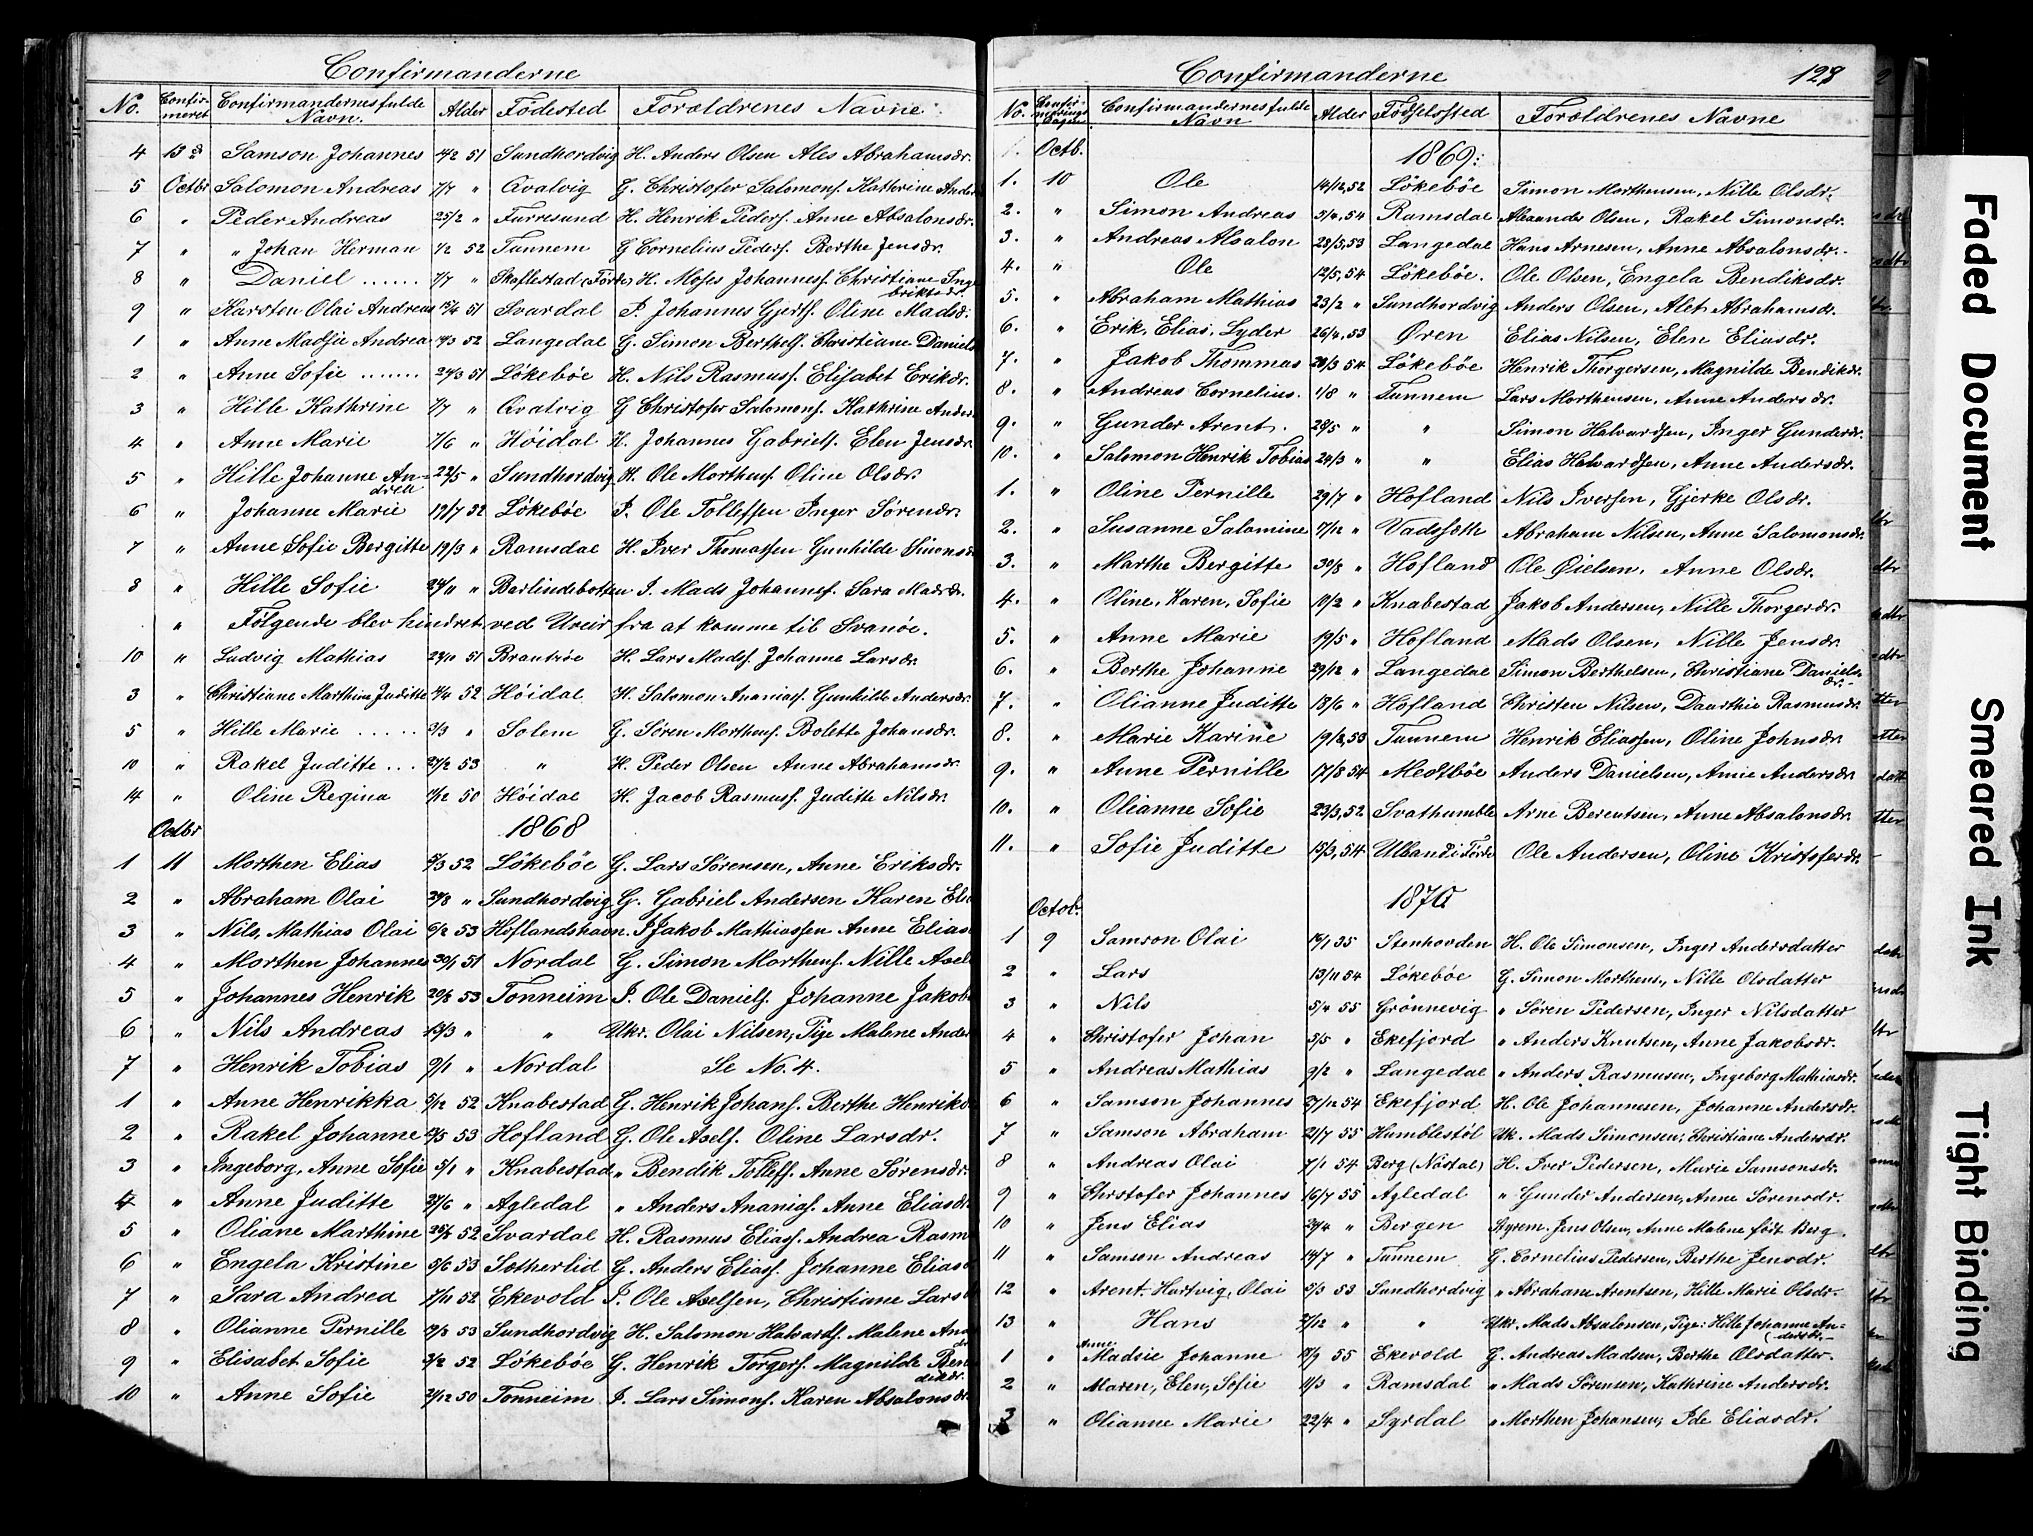 Confirmanderne
No. Confirmeret Confirmandernes fulde Navn. Alder Födested Forældrenes Navne:
4 13de Samson Johannes 14/2 51 Sundhordvig H. Anders Olsen Ales Abrahamsdr.
5 Octbr Salomon Andreas 7/7 " Qvalvig G. Christofer Salomons. Kathrine Anders
6 " Peder Andreas 25/2 " Furresund H. Henrik Peders. Anne Absalonsdr.
7 " " Johan Herman 1/2 52 Tunnem G Cornelius Peders. Berthe Jensdr.
8 " Daniel ...... 7/7 " (Förde) H. Moses Johanness. Christiane Inge
briktsdr.
9 " Karsten Olai Andreas 15/4 51 Svardal I. Johannes Gjerts. Oline Madsd.
1 " Anne Madsie Andrea 14/3 52 Langedal G. Simon Berthels. Christiane Daniels
2 " Anne Sofie ....... 24/3 51 Lökebøe H. Nils Rasmuss. Elisabet Erikdr.
3 " Hille Kathrine 7/7 " Qvalvig G Christofer Salomons. Kathrine Anders
4 " Anne Marie 7/6 " Höidal H. Johannes Gabriels. Elen Jensdr.
5 " Hille Johanne An- 22/5 " Sundhordvig H. Ole Morthens. Oline Olsdr.
drea
6 " Johanne Marie 19/7 52 Lökebøe I. Ole Tollefsen Inger Sörendr.
7 " Anne Sofie Bergitte 19/3 " Ramsdal H. Iver Thomassen Gunhilde Simonsd
8 " Hille Sofie 24/11 " Barlindebotten I. Mads Johannes. Sara Madsdr.
" Følgende blev hindret ved Uveir fra at komme til Svanöe.
10 " Ludvig Mathias 24/10 51 H. Lars Mads. Johanne Larsdr.
3 " Christiane Marthine Juditte 4/4 52 Höidal H. Salomon Ananias. Gunhilde Andersdr.
5 " Hille Marie ..... 3/3 " Solem G. Sören Morthens. Bolette Johansdr.
10 " Rakel Juditte ... 27/2 53 " H. Peder Olsen Anne Abrahamsdr.
14 " Oline Regina 11/12 50 Höidal H. Jacob Rasmuss. Juditte Nilsdr.
Octbr 1868
1 11 Morthen Elias 5/3 52 Lökebøe G. Lars Sørensen, Anne Eriksdr.
2 " Abraham Olai 24/8 " Sundhordvig G. Gabriel Andersen Karen
3 " Nils, Mathias Olai 6/2 53 Höflandshavn I Jakob Mathiassen Anne Elias
4 " Morthen Johannes 30/1 51 Nordal G. Simon Morthens. Nille Axel
5 " Johannes Henrik 20/5 53 Tonneim I. Ole Daniels. Johanne Jakob
6 " Nils Andreas 13/3 " " Ukr. Olai Nilsen, Pige Malene Ander
7 " Henrik Tobias 9/1 " Nordal Se No. 4.
1 " Anne Henrikka 5/12 52 Knabestad G. Henrik Johans. Berthe Henriksd
2 " Rakel Johanne 2/5 53 Hofland G. Ole Axels. Oline Larsdr.
3 " Ingeborg, Anne Sofie 5/1 " Knabestad " Bendik Tollefs. Anne Sørensdr.
4 " Anne Juditte 27/6 " Agledal " Anders Ananias. Anne Eliasdr.
5 " Oliane Marthine 25/5 52 Svardal H. Rasmus Elias. Andrea Rasm
6 " Engela Kristine 5/6 53 Sætherlid G. Anders Elias. Johanne Elias
7 " Sara Andrea 7/11 52 Ekevold I. Ole Axelsen, Christiane Lars
8 " Olianne Pernille 19/3 53 Sundhordvig H. Salomon Halvards. Malene And
9 " Elisabet Sofie 3/2 52 Lökebøe G. Henrik Torgers. Magnilde Ben
diksdr.
10 " Anne Sofie 21/12 50 Tonneim I. Lars Simons. Karen Absalonsdr.
Confirmanderne 128
No. Confirmerings Dagen Confirmandernes fulde Navn Alder Fødselssted Forældrenes Navne
Octb. 1869:
1. 10 Ole 14/12, 52 Lökebøe Simon Morthensen, Nille Olsdr.
2. " Simon Andreas 5/4, 54 Ramsdal Alexander Olsen, Rakel Simonsdr.
3. " Andreas Absalon 28/5, 53 Langedal Hans Arnesen, Anne Absalonsdr.
4. " Ole 12/5, 54 Lökebøe. Ole Olsen, Engela Bendiksdr.
5. " Abraham Mathias 23/2 " Sundhordvig Anders Olsen, Alet Abrahamsdr.
6. " Erik, Elias, Lyder 26/4, 53 Øren Elias Nilsen, Elen Eliasdr.
7. " Jakob Thommas 20/3 54 Lökebøe Henrik Thorgersen, Magnilde Bendikdr.
8. " Andreas Cornelius. 1/8 " Tunnem Lars Morthensen, Anne Andersdr.
9. " Gunder Arent. 28/5 " " Simon Halvardsen, Inger Gunderdr.
10. " Salomon Henrik Tobias 24/3 " " Elias Halvardsen, Anne Andersdr.
1. " Oline Pernille 29/7 " Hofland Nils Iversen, Gjerke Olsdr.
2. " Susanne Salomine 7/12 " Vadseth Abraham Nilsen, Anne Salomonsdr.
3. " Marthe Bergitte 30/8 " Hofland Ole Øielsen, Anne Olsdr.
4. " Oline, Karen, Sofie 10/2 " Knabestad Jakob Andersen, Nille Thorgerdr.
5. " Anne Marie 19/5 " Hofland Mads Olsen, Nille Jensdr.
6. " Berthe Johanne 29/12 " Langedal Simon Berthelsen, Christiane Daniels
dr.
7. " Olianne Juditte 18/6 " Hofland Christen Nilsen, Daarthie Rasmusdr.
8. " Marie Karine 19/2, 53 Tunnem Henrik Eliassen, Oline Johnsdr.
9. " Anne Pernille 17/8 54 Medtbøe Anders Danielsen, Anne Andersdr.
10. " Olianne Sofie 23/3, 52 Svathumble Arne Berentsen, Anne Absalonsdr.
11. " Sofie Juditte 15/3, 54 Ulland i Førde Ole Andersen, Oline Kristoferdr.
1870
Octob.
1 9 Samson Olai 16/1 35 Stenhovden H. Ole Simonsen, Inger Andersdatter
2 " Lars 13/11 54 Lökebøe G. Simon Morthens., Nille Olsdatter
3 " Nils 5/4 55 Grönnevig " Sören Pedersen, Inger Nilsdatter
4 " Christofer Johan 5/5 " Ekefjord " Anders Knutsen, Anne Jakobsdr.
5 " Andreas Mathias 9/2 " Langedal " Anders Rasmusen, Ingeborg Mathiasdr.
6 " Samson Johannes 27/12 54 Ekefjord H. Ole Johannesen, Johanne Andersdr.
7 " Samson Abraham 21/7 55 Humblestöl Uk. Mads Simonsen, Christiane Andersdr.
8 " Andreas Olai 7/1 54 Berg (Nöstal) H. Iver Pedersen, Marie Samsonsdr.
9 " Chrstofer Johannes 16/7 55 Agledal " Gunder Andersen, Anne Sörensdr.
10 " Jens Elias 29/4 " Bergen Styrm. Jens Olsen, Anne Malene født Berg.
11 " Samson Andreas 14/7 " Tunnem G. Cornelius Pedersen, Berthe Jensdr.
12 " Arent, Hartvig, Olai 5/3 53 Sundhordvig " Abraham Arentsen, Hille Marie Olsdr.
13 " Hans 7/12 " " Ukr. Mads Absalonsen, Pige: Hille Johanne An-
(dersdr.
1 " Anne Madsie Johanne 18/9 55 Ekevold G. Andreas Madsen, Berthe Olsdatter.
2 " Maren, Elen, Sofie 11/3 " Ramsdal " Mads Sörensen, Kathrine Andersdr.
3 " Olianne Marie 22/4 " Syrdal " Morthen Johansen, Ide Eliasdr.
Faded Document
Smeared Ink
Tight Binding